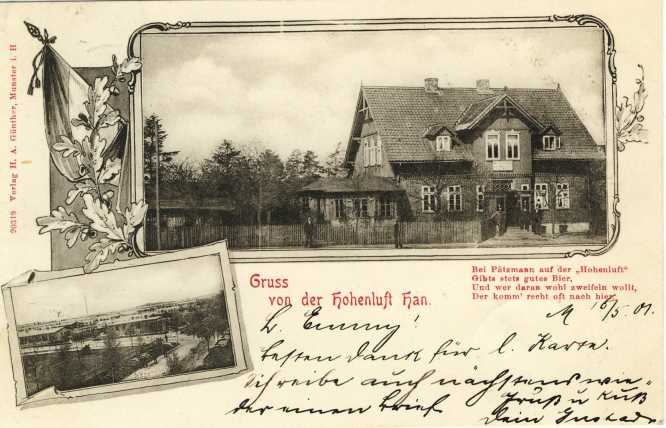 20319 Verlag H. A. Günther, Munster i. H
Gruss
von der Hohenluft Han.
Bei Pätzmann auf der „Hohenluft"
Gibts stets gutes Bier,
Und wer daran wohl zweifeln wollt,
Der komm' recht oft nach hier.
M 16/5. 01.
L. Emmy!
besten Dank für l. Karte.
Schreibe auch nächstens wie-
der einen Brief
Gruß u Kuß
Dein